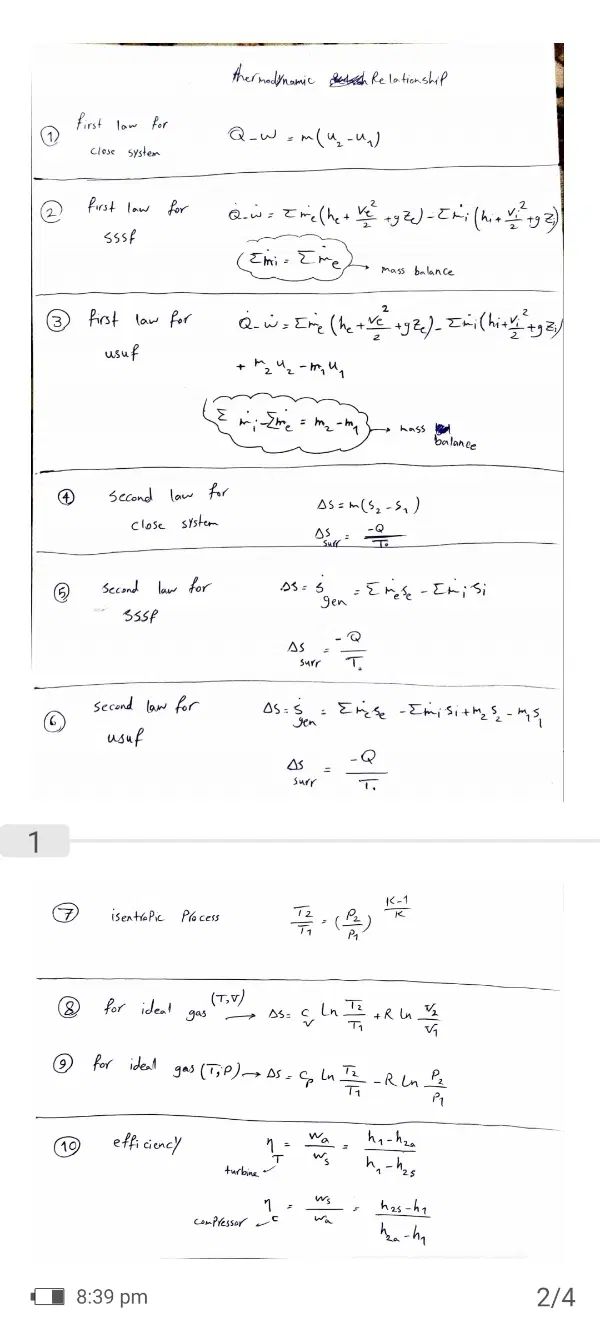 thermodynamic Relationship
① first law for close system Q-W = m(u₂-u₁)
② first law for sssf Q̇-ẇ = Σṁe(he + Ve²/2 + gZe) - Σṁi(hi + Vi²/2 + gZi)
Σṁi = Σṁe → mass balance
③ first law for usuf Q̇-ẇ = Σṁe(he + Ve²/2 + gZe) - Σṁi(hi + Vi²/2 + gZi)
+ m₂u₂ - m₁u₁
Σṁi - Σṁe = m₂ - m₁ → mass balance
④ second law for close system ΔS = m(s₂ - s₁)
ΔS surr = -Q/T₀
⑤ second law for sssf ΔS = Ṡgen = Σṁese - Σṁisi
ΔS surr = -Q/T₀
⑥ second law for usuf ΔS = Ṡgen = Σṁese - Σṁisi + m₂s₂ - m₁s₁
ΔS surr = -Q/T₀
1
⑦ isentropic Process T₂/T₁ = (P₂/P₁)^((K-1)/K)
⑧ for ideal gas (T,V) → Δs = Cv Ln T₂/T₁ + R Ln V₂/V₁
⑨ for ideal gas (T,P) → Δs = Cp Ln T₂/T₁ - R Ln P₂/P₁
⑩ efficiency ηT = Wa/Ws = (h₁-h₂a)/(h₁-h₂s)
turbine
ηc = Ws/Wa = (h₂s-h₁)/(h₂a-h₁)
compressor
8:39 pm 2/4